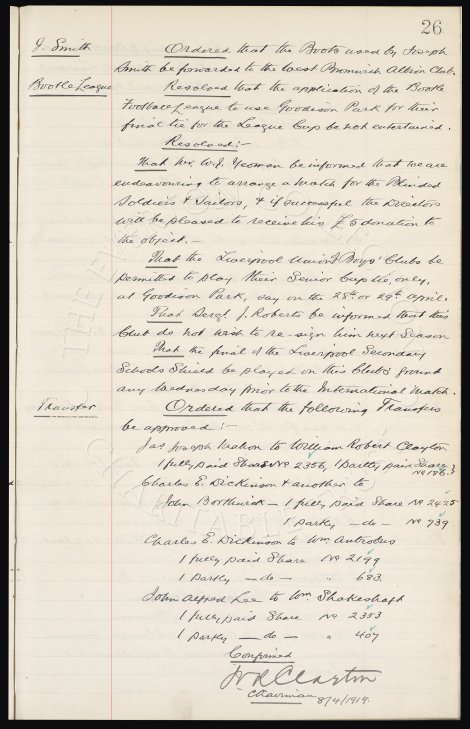 26
J. Smith
Ordered that the Boots used by Joseph
Smith be forwarded to the West Bromwich Albion Club.
Bootle League
Resolved that the application of the Bootle
Football League to use Goodison Park for their
final tie for the League Cup be not entertained.
Resolved:-
That Mr. W.J. Yeoman be informed that we are
endeavouring to arrange a match for the Blinded
Soldiers & Sailors, & if successful the Directors
will be pleased to receive his £5 donation to
the object.—
That the Liverpool Union of Boys' Clubs be
permitted to play their Senior Cup tie, only,
at Goodison Park, say on the 28th or 29th April.
That Sergt J. Roberts be informed that this
Club do not wish to re-sign him next Season
That the final of the Liverpool Secondary
Schools Shield be played on this Club's ground
any Wednesday prior to the International Match.
Transfer
Ordered that the following Transfers
be approved:-
Jas Joseph to William Robert Clayton
1 fully paid Share No 2356, 1 partly paid Share
No 186
Charles E. Dickinson & another to
John Borthwick — 1 fully paid Share No 2425
1 partly — do — No 739
Charles E. Dickinson to Wm Antrobus
1 fully paid Share No 2199
1 partly — do — " 683
John Alfred Lee to Wm Shakeshaft
1 fully paid Share No 2353
1 partly — do — " 407
Confirmed
W R Clayton
Chairman 8/4/1919.